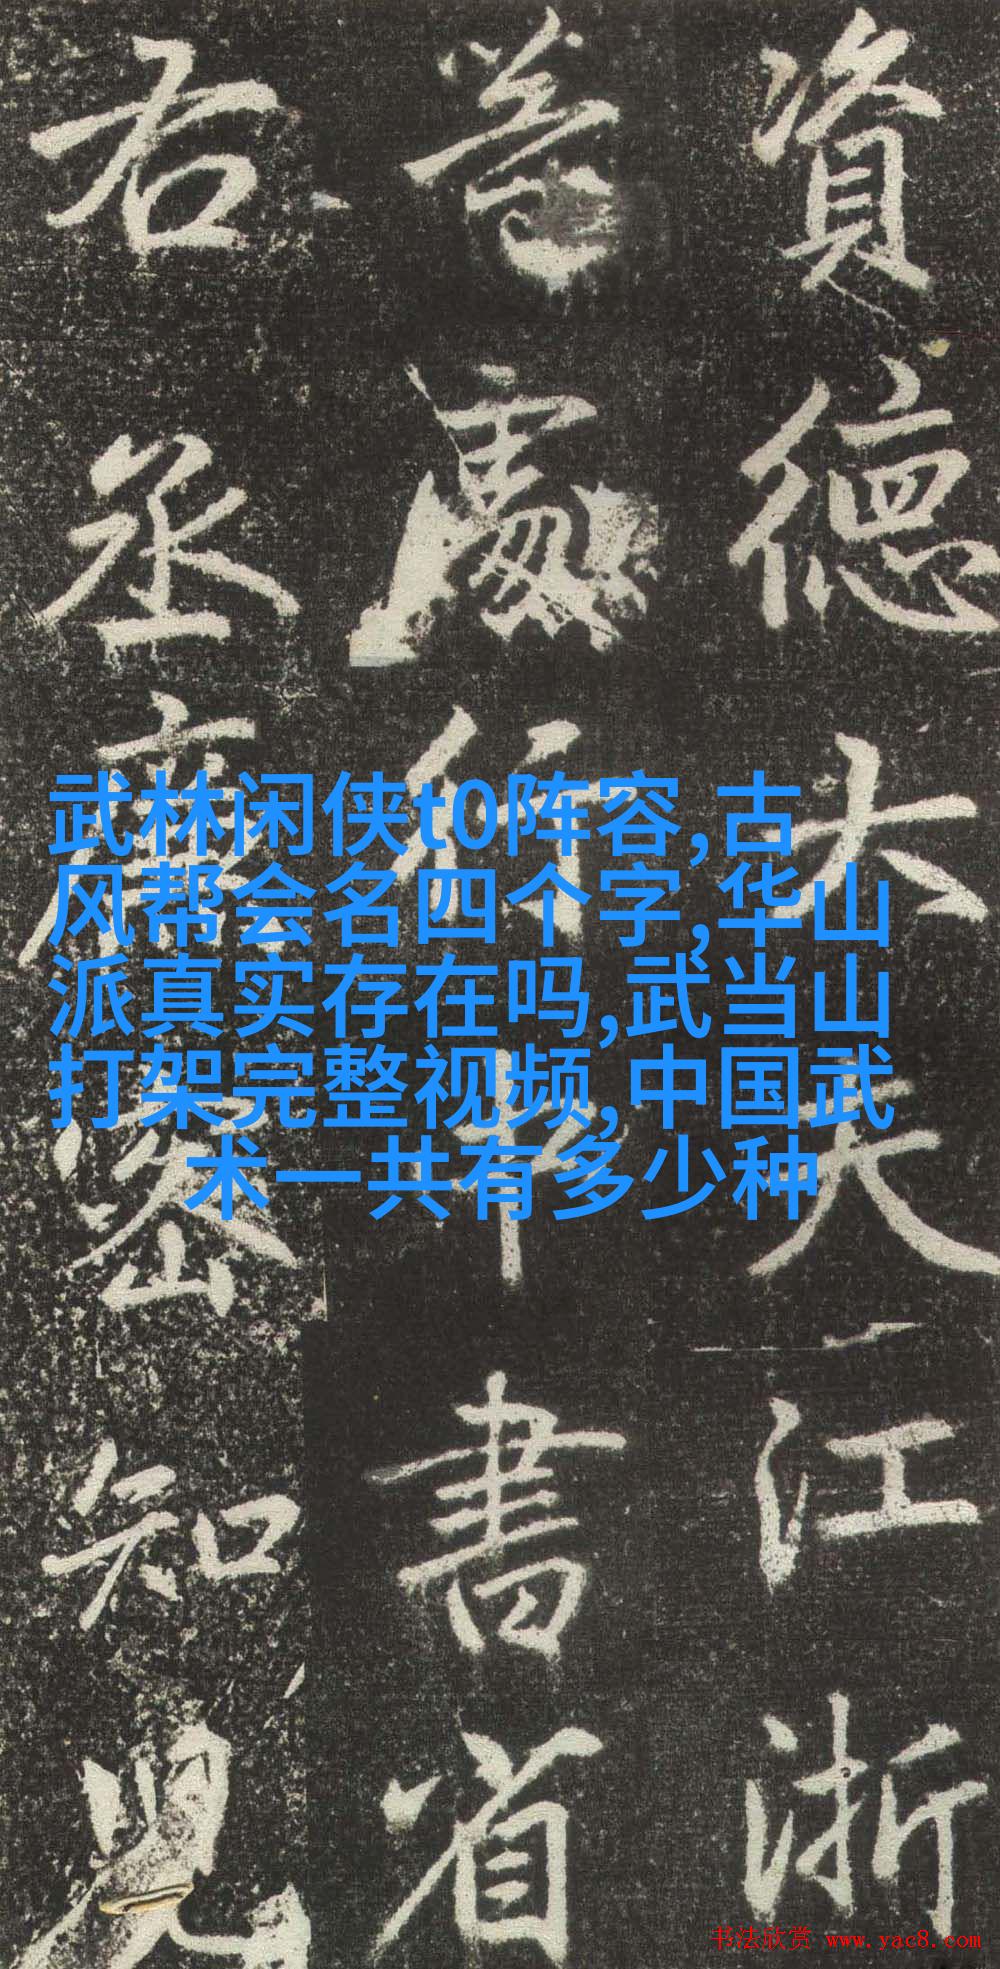 武林闲侠t0阵容,古
风帮会名四个字,华山
派真实存在吗,武当山
打架完整视频,中国武
术一共有多少种
資德大夫江浙
等處行中書省
右丞密知
书法欣赏 www.yac8.com